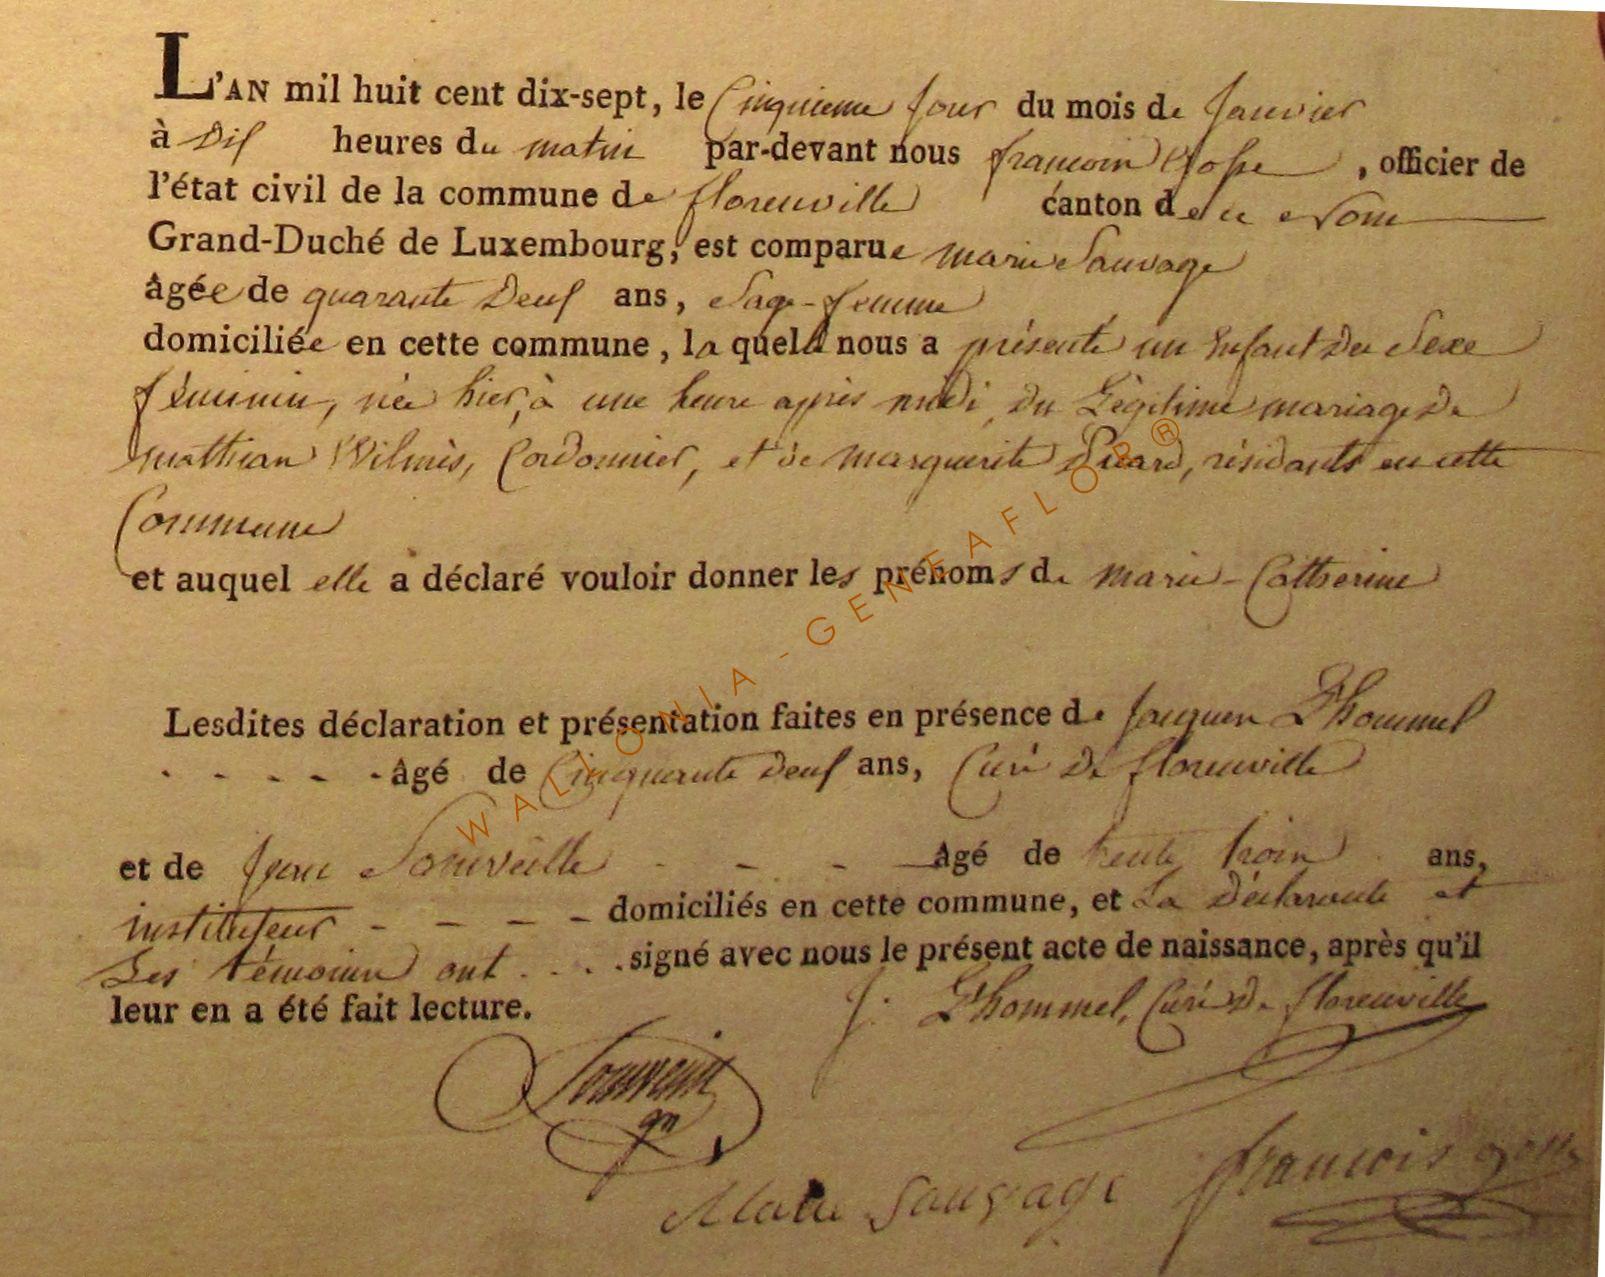 L'AN mil huit cent dix-sept, le Cinquieme jour du mois de Janvier
à Dix heures du matin par-devant nous francois Gosse, officier de
l'état civil de la commune de florenville canton de ce nom
Grand-Duché de Luxembourg, est comparue marie Sauvage
âgée de quarante Deux ans, Sage-femme
domiciliée en cette commune, la quelle nous a présenté un Enfant du Sexe
féminin, née hier, à une heure après midi, du Légitime mariage de
mathias Wilmès, Cordonnier, et de marguerite Picard, résidants en cette
Commune
et auquel elle a déclaré vouloir donner les prénoms de marie-Catherine
Lesdites déclaration et présentation faites en présence de Jacques Lhommel
âgé de Cinquante Deux ans, Curé de florenville
et de Jean âgé de trente trois ans,
instituteur domiciliés en cette commune, et La Déclarante et
Les témoins ont signé avec nous le présent acte de naissance, après qu'il
leur en a été fait lecture.
J. Lhommel, Curé de florenville
Marie Sauvage francois gosse
WALLONIA-GENEAFLOR ®